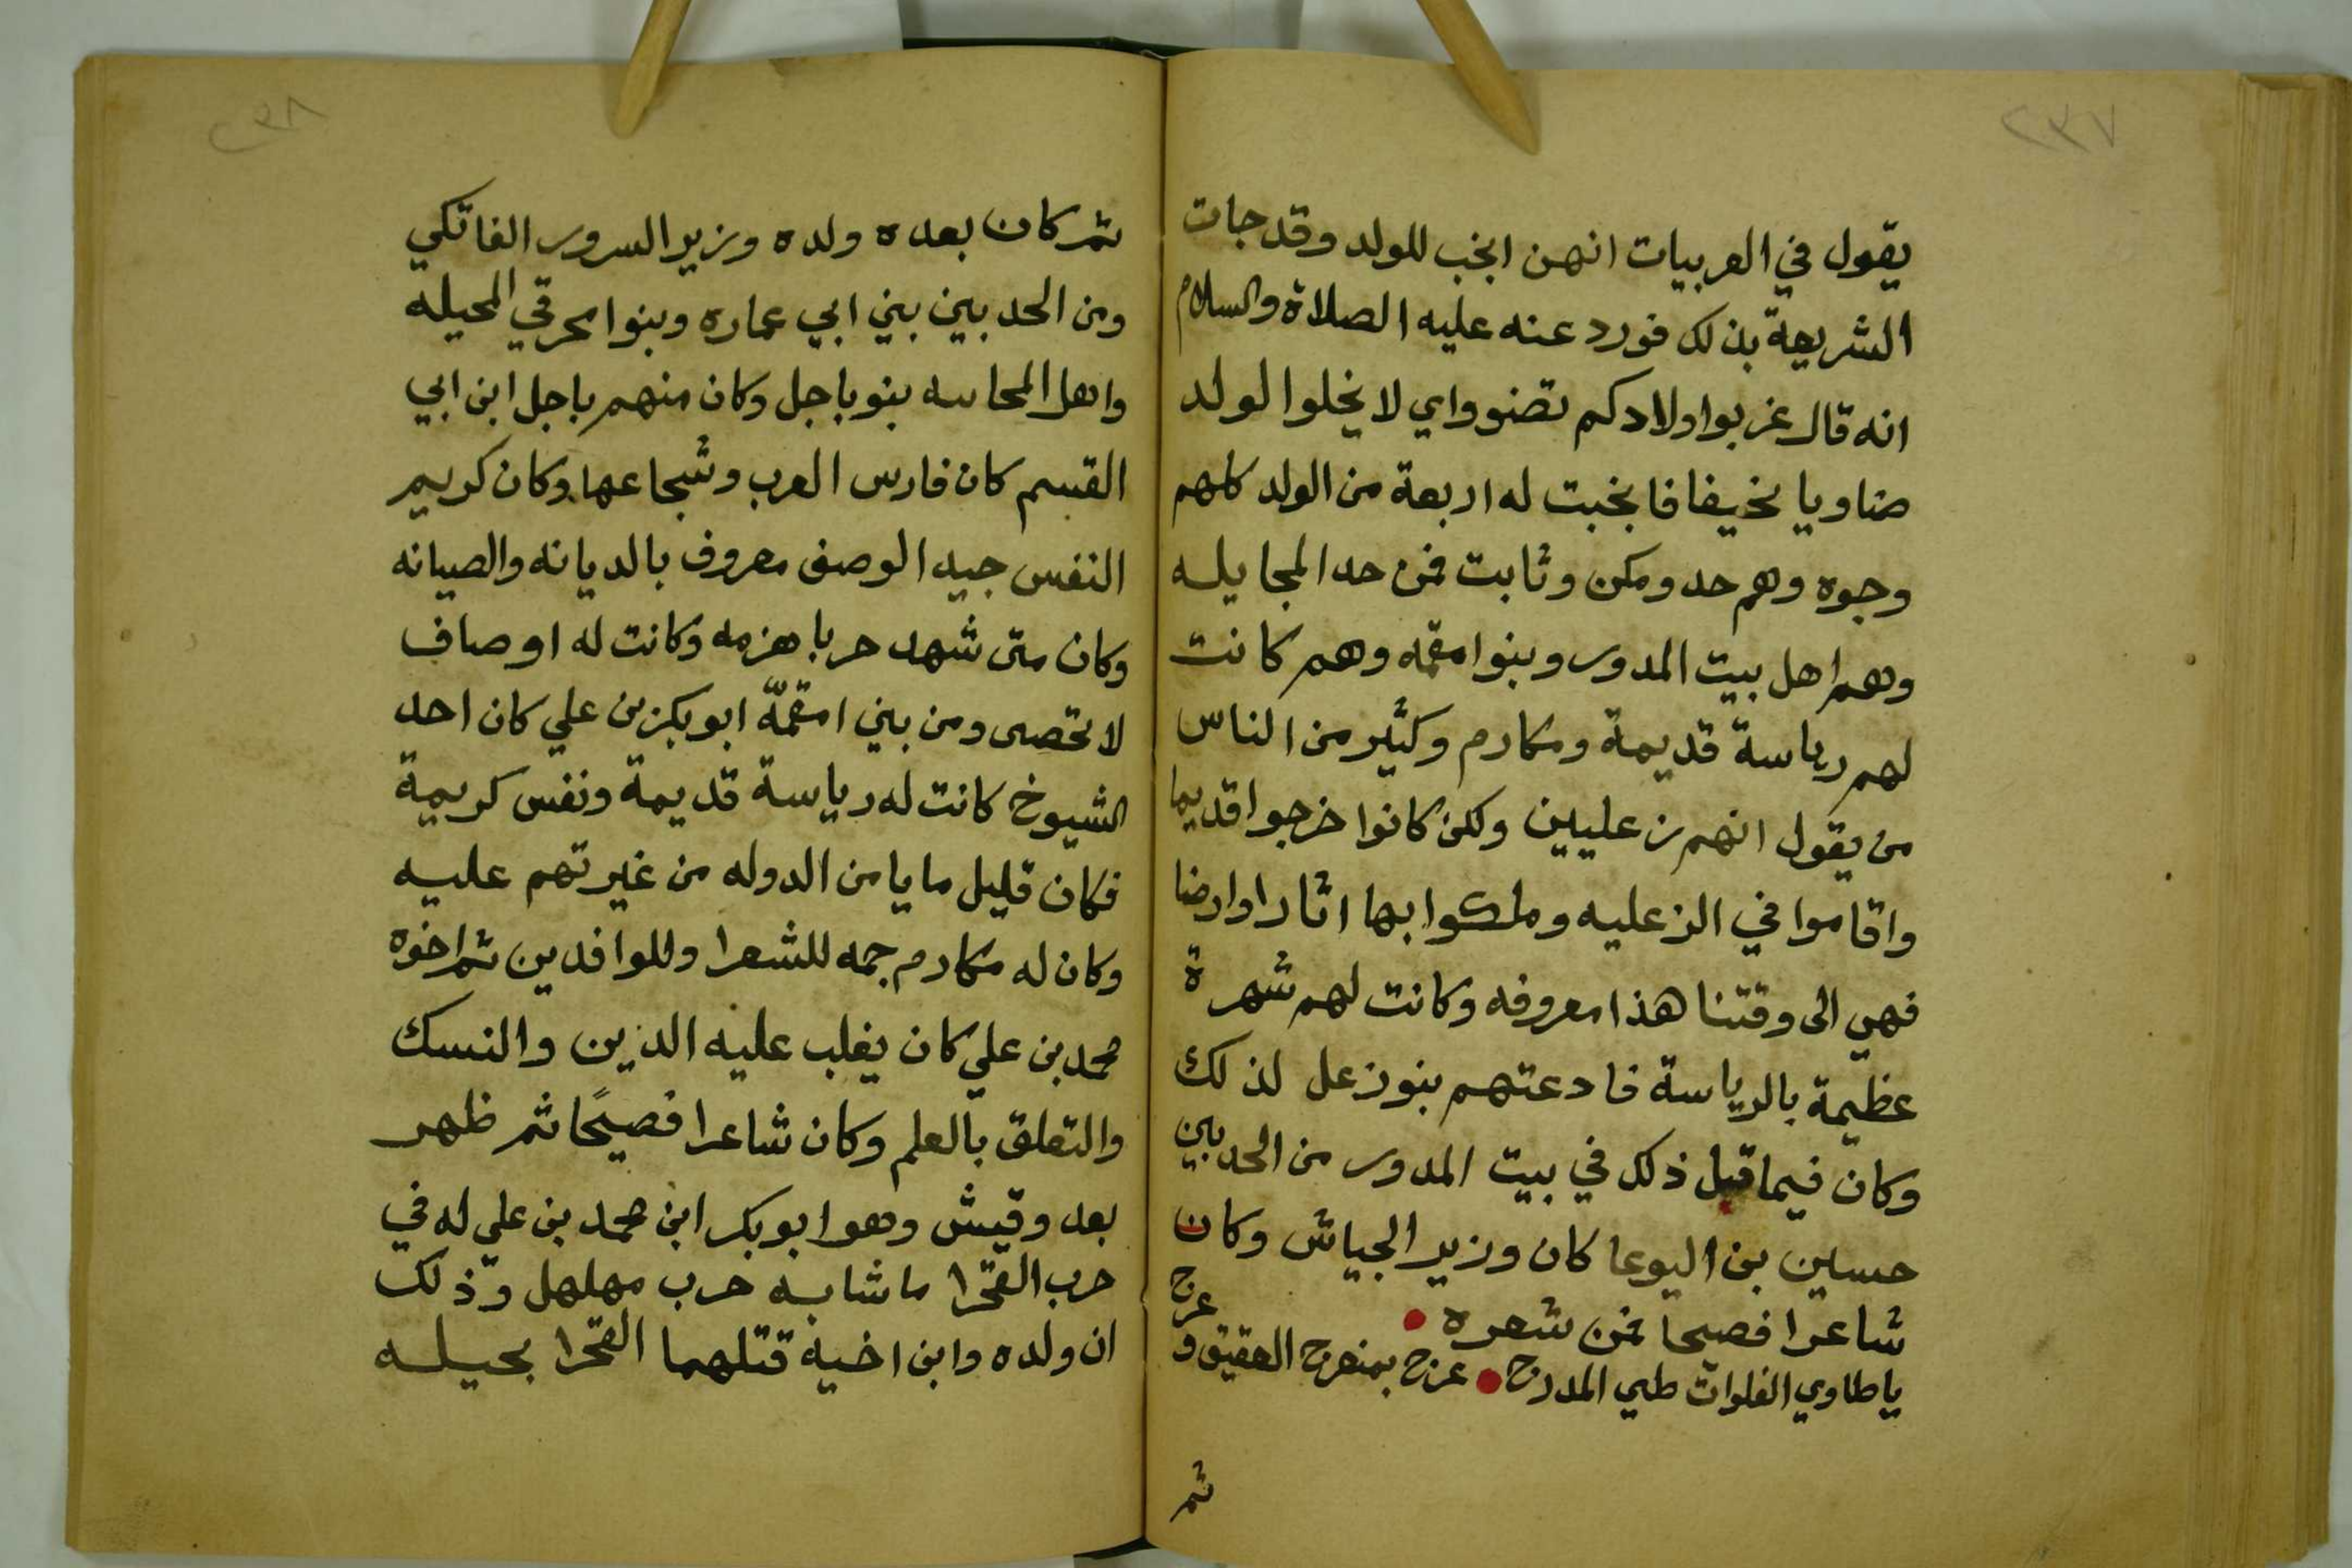 ٢٣٧
يقول في العربيات انهن انجب للولد وقد جات
الشريعة بذلك فورد عنه عليه الصلاة والسلام
انه قال غربوا اولادكم تضنووا اي لا يخلوا لولد
ضاويا نحيفا فانجبت له اربعة من الولد كلهم
وجوه وهم حد ومكن وثابت فمن حد المجايله
وهم اهل بيت المدور وبنوا مقمه وهم كانت
لهم رياسة قديمة ومكارم وكثير من الناس
من يقول انهم من عليين ولكن كانوا خرجوا قديما
واقاموا في الزعليه وملكوا بها اثارا وارضا
فهي الى وقتنا هذا معروفه وكانت لهم شهرة
عظيمة بالرياسة فادعتهم بنوزعل لذلك
وكان فيما قبل ذلك في بيت المدور من الحدبين
حسين بن اليوعا كان وزير الجياش وكان
شاعرا فصيحا فمن شعره
ياطاوي الفلوات طي المدرج عرج بمنعرج العقيق وعرج
ثم
٢٣٨
ثم كان بعده ولده وزير السرور الفاتكي
ومن الحدبين بني ابي عماره وبنوا محرقي المحيله
واهل المحاسه بنو باجل وكان منهم باجل ابن ابي
القسم كان فارس العرب وشجاعها وكان كريم
النفس جيد الوصف معروف بالديانه والصيانه
وكان متى شهد حربا هزمه وكانت له اوصاف
لا تحصى ومن بني امقمّه ابو بكر بن علي كان احد
الشيوخ كانت له رياسة قديمة ونفس كريمة
فكان قليل ما يامن الدوله من غيرتهم عليه
وكان له مكارم جمه للشعرا وللوافدين ثم اخوه
محمد بن علي كان يغلب عليه الدين والنسك
والتعلق بالعلم وكان شاعرا فصيحًا ثم ظهر
بعد وقيش وهو ابو بكر ابن محمد بن علي له في
حرب القحرا ما شابه حرب مهلهل وذلك
ان ولده وابن اخيه قتلهما القحرا بحيله